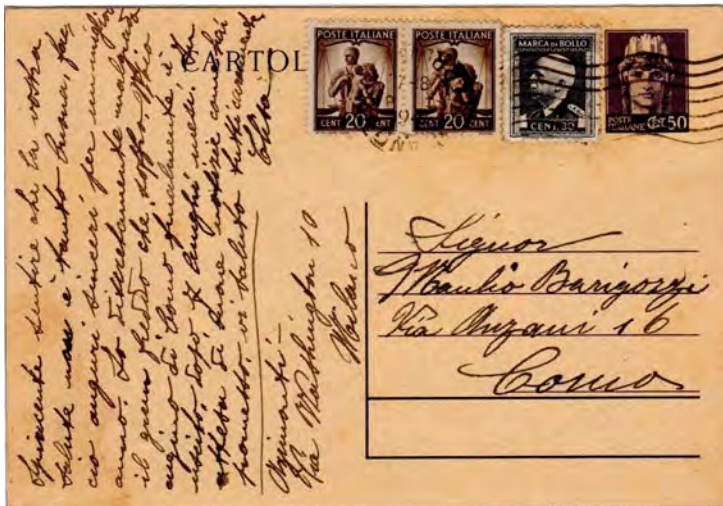 CARTOL
POSTE ITALIANE
CENT 20 CENT
POSTE ITALIANE
CENT 20 CENT
MARCA DA BOLLO
CENT. 30
POSTE
ITALIANE CENT 50
Spiacente sentire che la vostra
salute non è tanto buona, fac
cio auguri sinceri per un miglior
anno. Io discretamente malgrado
il gran freddo che soffro. Mio
cugino di Como finalmente è
uscito dopo lunghi mesi. In
attesa di buone notizie come hai
promesso, vi saluto tutti
Via Washington 10
Milano
Signor
Manlio Barigozzi
Via Anzani 16
Como